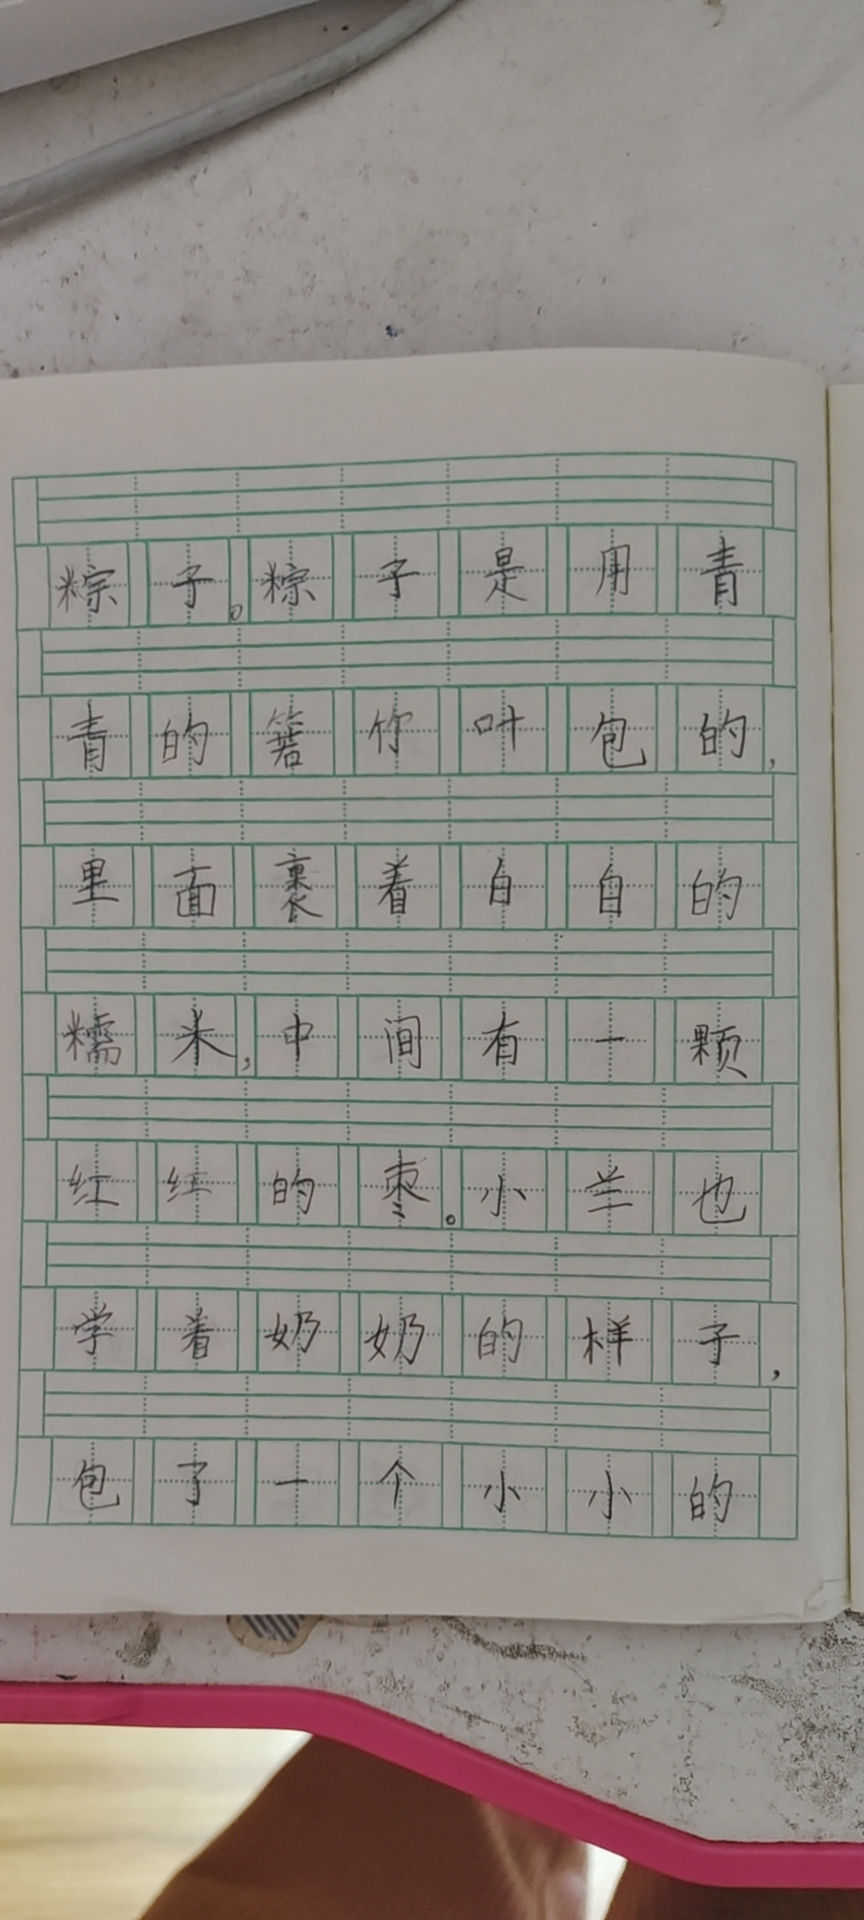 粽子。粽子是用青
青的箬竹叶包的，
里面裹着自自的
糯米，中间有一颗
红红的枣。小兰也
学着奶奶的样子，
包了一个小小的